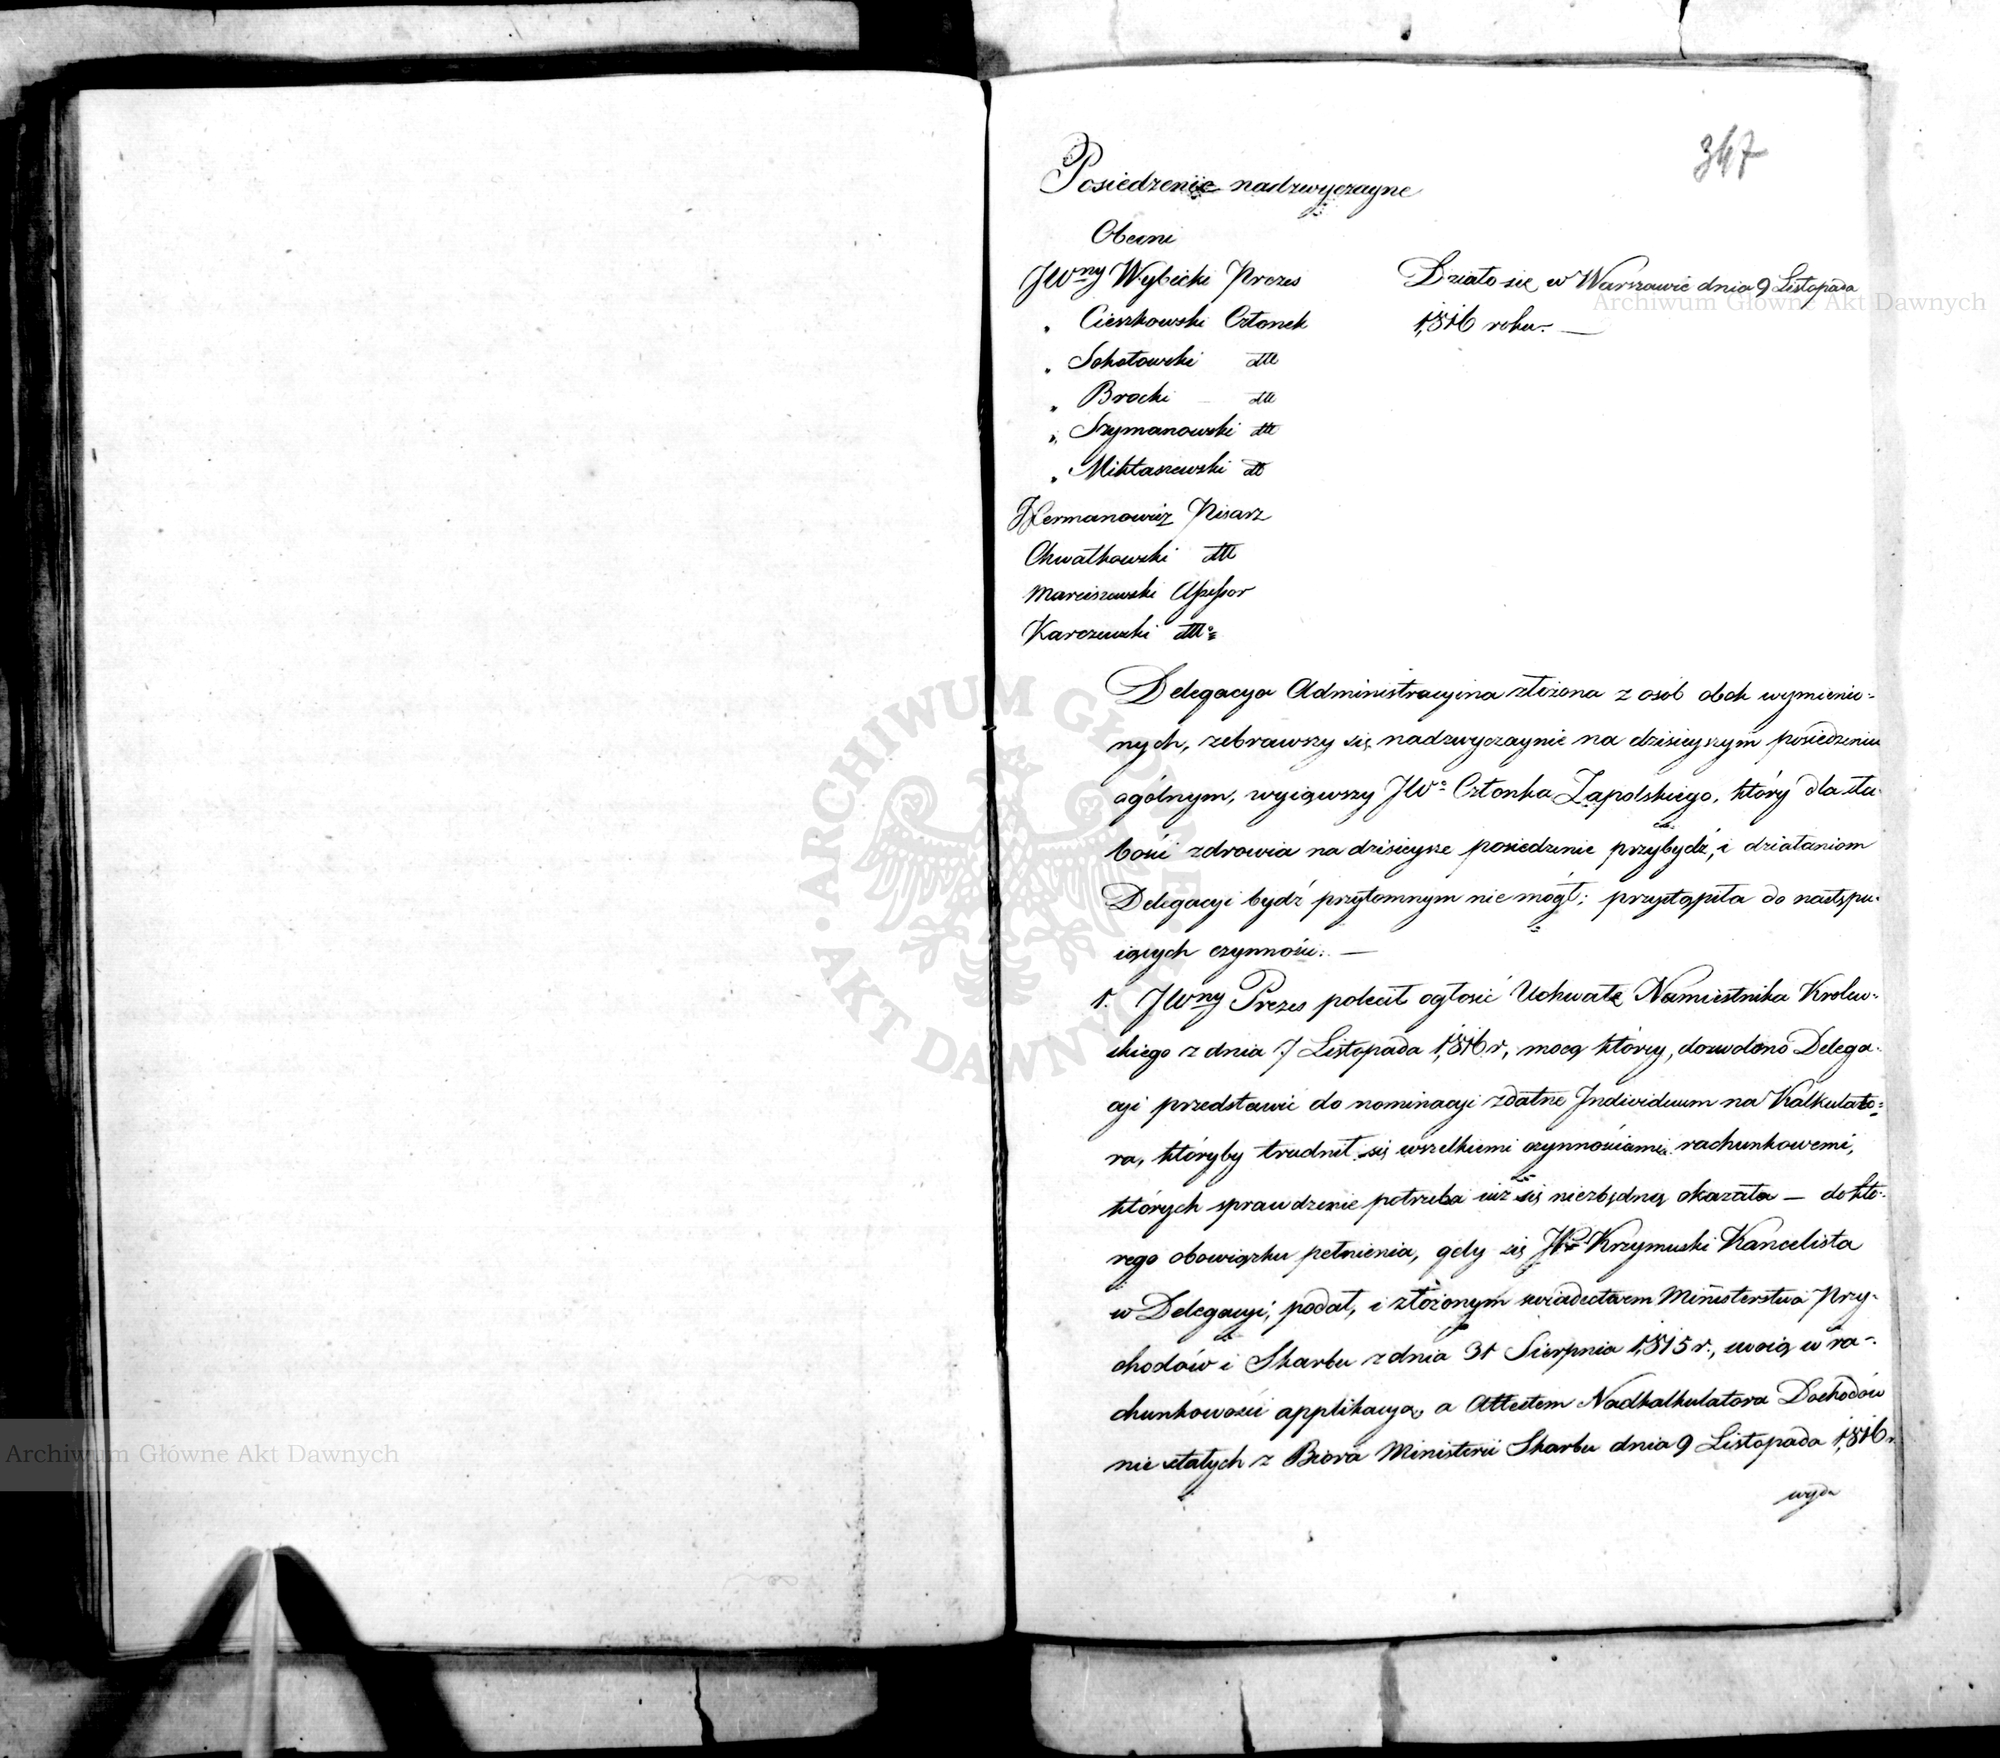 347
Posiedzenie nadzwyczayne
Obecni
JWny Wybicki Prezes
Działo się w Warszawie dnia 9 Listopada
1816 roku. —
„ Cieszkowski Członek
„ Sokołowski dtt
„ Brocki dtt
„ Szymanowski dtt
„ Mikłaszewski dtt
Hermanowicz Pisarz
Chwałkowski dtt
Marciszewski Assessor
Karczewski dtto
Delegacya Administracyina złożona z osób obok wymienio-
nych, zebrawszy się nadzwyczaynie na dzisieyszym posiedzeniu
ogólnym, wyiąwszy JWo Członka Zapolskiego, który dla sła-
bości zdrowia na dzisieysze posiedzenie przybydź, i działaniom
Delegacyi bydź przytomnym nie mógł; przystąpiła do nastpu-
iących czynności. —
1. JWny Prezes polecił ogłosić Uchwałę Namiestnika Krolew-
skiego z dnia 7 Listopada 1816 r, mocą którey, dozwolono Delega-
cyi przedstawić do nominacyi zdatne Individuum na Kalkulato-
ra, któryby trudnił się wszelkiemi czynnościami rachunkowemi,
których sprawdzenie potrzeba iuż się niezbędną okazała — do któ-
rego obowiązku pełnienia, gdy się Krzymuski Kancelista
w Delegacyi, podał, i złożonym swiadectwem Ministerstwa Przy-
chodów i Skarbu z dnia 31 Sierpnia 1815 r., swoią w ra-
chunkowości applikacyą, a Attestem Nadkalkulatora Dochodów
nie stałych z Biora Ministerii Skarbu dnia 9 Listopada 1816 r.
wyda
Archiwum Główne Akt Dawnych
Archiwum Główne Akt Dawnych
ARCHIWUM GŁÓWNE AKT DAWNYCH